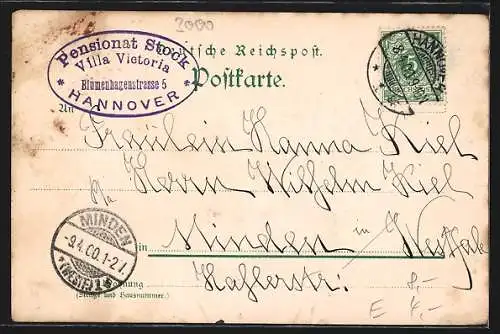 2000
Pensionat Stock
Villa Victoria
Blumenhagenstrasse 5
* HANNOVER *
Deutsche Reichspost.
Postkarte.
HANNOVER
An
Fräulein Hanna Kiel
Herrn Wilhelm Kiel
in Minden i/ Westfale
Hahlerstr.
Wohnung
(Straße und Hausnummer.)
MINDEN
-9.4.00.1-2 N.
* (WESTF) 1 *
8,-
E 4,-